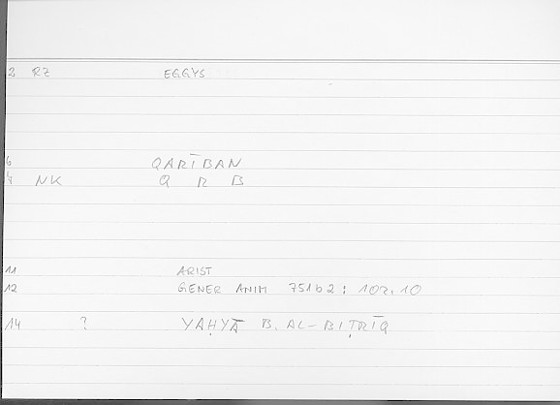 2 RZ EGGYS
6 QARĪBAN
8 NK Q R B
11 ARIST
12 GENER ANIM 751b2 : 102.10
14 ? YAḤYĀ B. AL-BIṬRĪQ